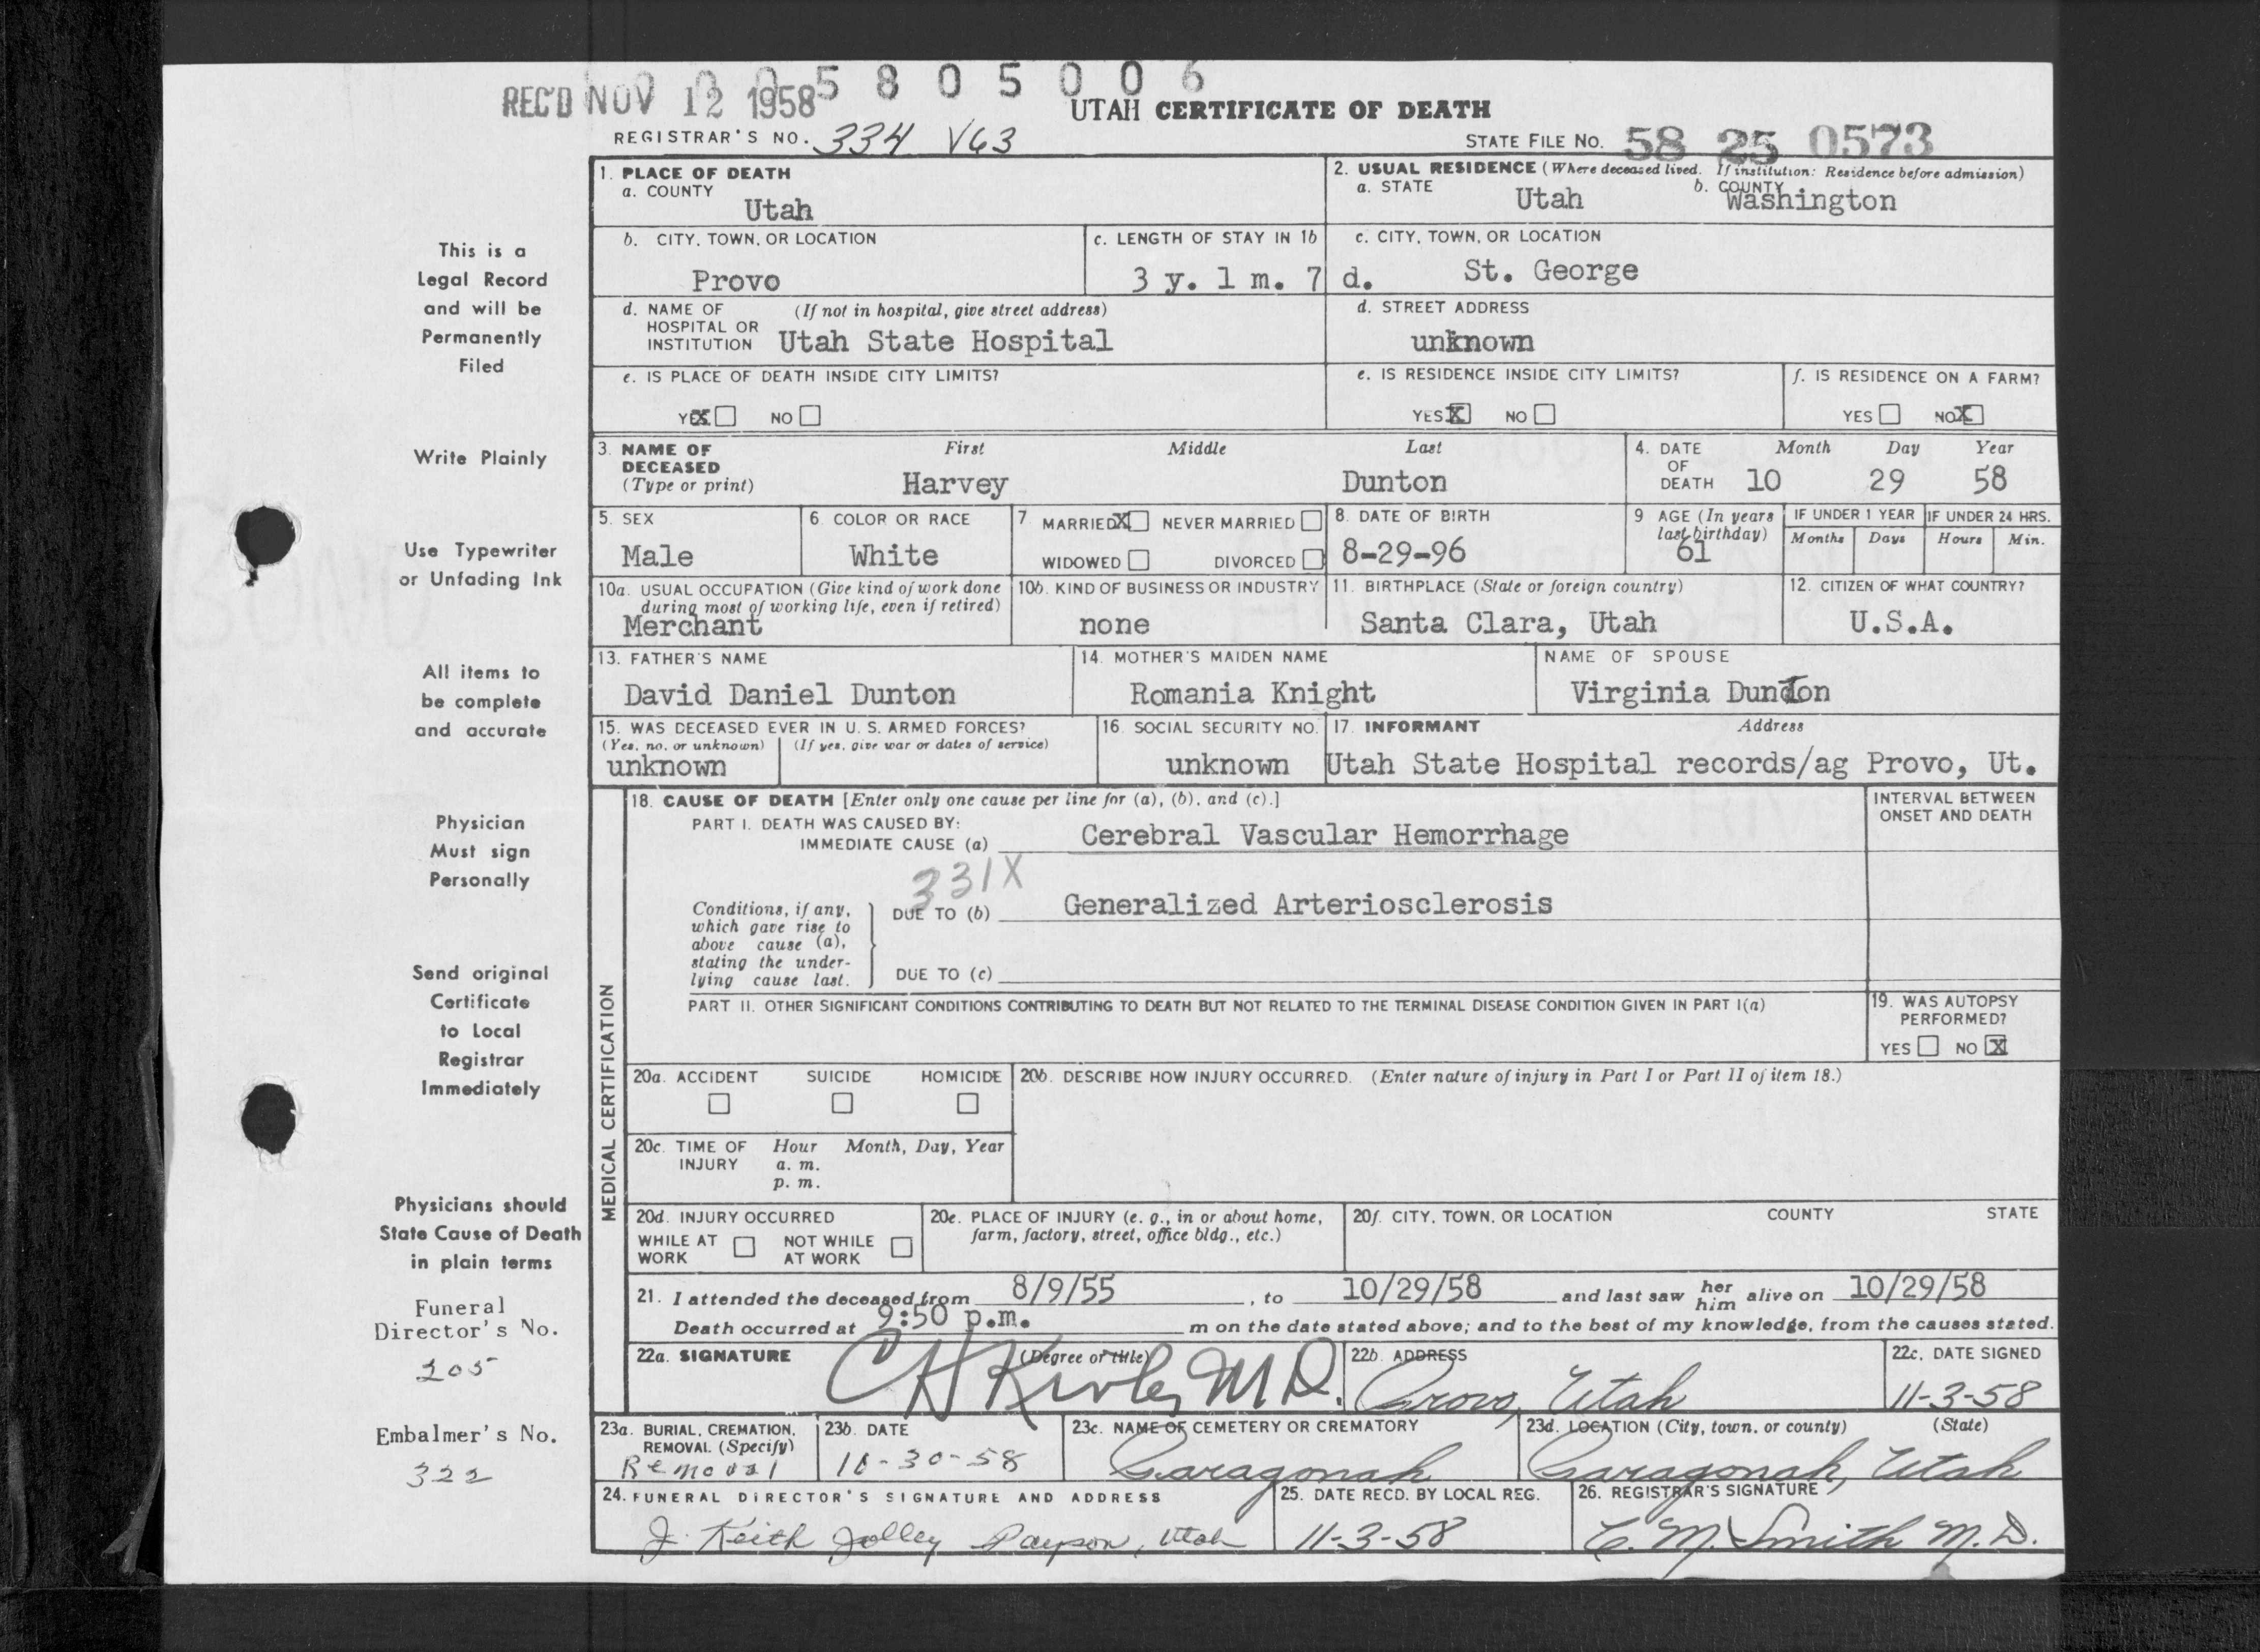 0 0 0 5 8 0 5 0 0 6
REC'D NOV 12 1958
UTAH CERTIFICATE OF DEATH
REGISTRAR'S NO. 334 V63
STATE FILE NO. 58 25 0573
1. PLACE OF DEATH
a. COUNTY
Utah
2. USUAL RESIDENCE (Where deceased lived. If institution: Residence before admission)
a. STATE Utah b. COUNTY Washington
b. CITY, TOWN, OR LOCATION
Provo
c. LENGTH OF STAY IN 1b
3 y. 1 m. 7 d.
c. CITY, TOWN, OR LOCATION
St. George
d. NAME OF HOSPITAL OR INSTITUTION (If not in hospital, give street address)
Utah State Hospital
d. STREET ADDRESS
unknown
e. IS PLACE OF DEATH INSIDE CITY LIMITS?
YES X NO
e. IS RESIDENCE INSIDE CITY LIMITS?
YES X NO
f. IS RESIDENCE ON A FARM?
YES NO X
3. NAME OF DECEASED (Type or print)
First Middle Last
Harvey Dunton
4. DATE OF DEATH
Month Day Year
10 29 58
5. SEX
Male
6. COLOR OR RACE
White
7 MARRIED X NEVER MARRIED
WIDOWED DIVORCED
8. DATE OF BIRTH
8-29-96
9 AGE (In years last birthday)
61
IF UNDER 1 YEAR
Months Days
IF UNDER 24 HRS.
Hours Min.
10a. USUAL OCCUPATION (Give kind of work done during most of working life, even if retired)
Merchant
10b. KIND OF BUSINESS OR INDUSTRY
none
11. BIRTHPLACE (State or foreign country)
Santa Clara, Utah
12. CITIZEN OF WHAT COUNTRY?
U.S.A.
13. FATHER'S NAME
David Daniel Dunton
14. MOTHER'S MAIDEN NAME
Romania Knight
NAME OF SPOUSE
Virginia Dunton
15. WAS DECEASED EVER IN U. S. ARMED FORCES?
(Yes, no, or unknown) (If yes, give war or dates of service)
unknown
16. SOCIAL SECURITY NO.
unknown
17. INFORMANT Address
Utah State Hospital records/ag Provo, Ut.
MEDICAL CERTIFICATION
18. CAUSE OF DEATH [Enter only one cause per line for (a), (b), and (c).]
INTERVAL BETWEEN ONSET AND DEATH
PART I. DEATH WAS CAUSED BY:
IMMEDIATE CAUSE (a) Cerebral Vascular Hemorrhage
331X
Conditions, if any, which gave rise to above cause (a), stating the underlying cause last.
DUE TO (b) Generalized Arteriosclerosis
DUE TO (c)
PART II. OTHER SIGNIFICANT CONDITIONS CONTRIBUTING TO DEATH BUT NOT RELATED TO THE TERMINAL DISEASE CONDITION GIVEN IN PART I(a)
19. WAS AUTOPSY PERFORMED?
YES NO X
20a. ACCIDENT SUICIDE HOMICIDE
20b. DESCRIBE HOW INJURY OCCURRED. (Enter nature of injury in Part I or Part II of item 18.)
20c. TIME OF INJURY Hour Month, Day, Year
a. m.
p. m.
20d. INJURY OCCURRED
WHILE AT WORK NOT WHILE AT WORK
20e. PLACE OF INJURY (e. g., in or about home, farm, factory, street, office bldg., etc.)
20f. CITY, TOWN, OR LOCATION COUNTY STATE
21. I attended the deceased from 8/9/55, to 10/29/58 and last saw her him alive on 10/29/58
Death occurred at 9:50 p.m. m on the date stated above; and to the best of my knowledge, from the causes stated.
22a. SIGNATURE (Degree or title)
M D.
22b. ADDRESS
Provo, Utah
22c. DATE SIGNED
11-3-58
23a. BURIAL, CREMATION, REMOVAL (Specify)
Removal
23b. DATE
10-30-58
23c. NAME OF CEMETERY OR CREMATORY
Paragonah
23d. LOCATION (City, town, or county) (State)
Paragonah, Utah
24. FUNERAL DIRECTOR'S SIGNATURE AND ADDRESS
J. Keith Jolley Payson, Utah
25. DATE RECD. BY LOCAL REG.
11-3-58
26. REGISTRAR'S SIGNATURE
C. M. Smith M.D.
This is a
Legal Record
and will be
Permanently
Filed
Write Plainly
Use Typewriter
or Unfading Ink
All items to
be complete
and accurate
Physician
Must sign
Personally
Send original
Certificate
to Local
Registrar
Immediately
Physicians should
State Cause of Death
in plain terms
Funeral
Director's No.
205
Embalmer's No.
322